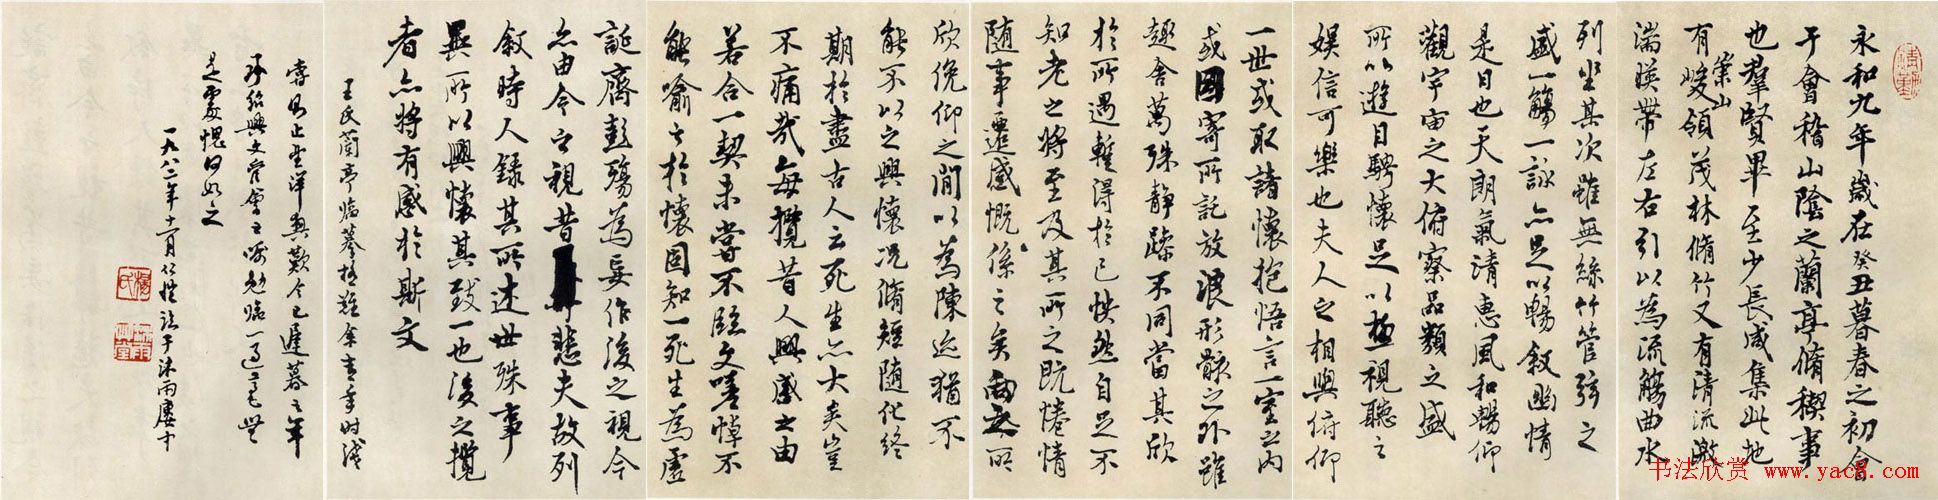 永和九年歲在癸丑暮春之初會
于會稽山陰之蘭亭脩稧事
也羣賢畢至少長咸集此地
有崇山峻領茂林脩竹又有清流激
湍暎帶左右引以為流觴曲水
列坐其次雖無絲竹管弦之
盛一觴一詠亦足以暢敘幽情
是日也天朗氣清惠風和暢仰
觀宇宙之大俯察品類之盛
所以遊目騁懷足以極視聽之
娛信可樂也夫人之相與俯仰
一世或取諸懷抱悟言一室之內
或因寄所託放浪形骸之外雖
趣舍萬殊靜躁不同當其欣
於所遇暫得於己怏然自足不
知老之將至及其所之既惓情
隨事遷感慨係之矣向之所
欣俛仰之閒以為陳迹猶不
能不以之興懷況脩短隨化終
期於盡古人云死生亦大矣豈
不痛哉每攬昔人興感之由
若合一契未嘗不臨文嗟悼不
能喻之於懷固知一死生為虛
誕齊彭殤為妄作後之視今
亦由今之視昔悲夫故列
敘時人錄其所述世殊事
異所以興懷其致一也後之攬
者亦將有感於斯文
王氏蘭亭臨摹極難余青年時
止望洋興歎今已遲暮之年
承紹興文管會之囑勉臨一過
是處愧何如之
一九八二年十一月仁愷識于沐雨廔中
楊氏
书法欣赏 www.yac8.com